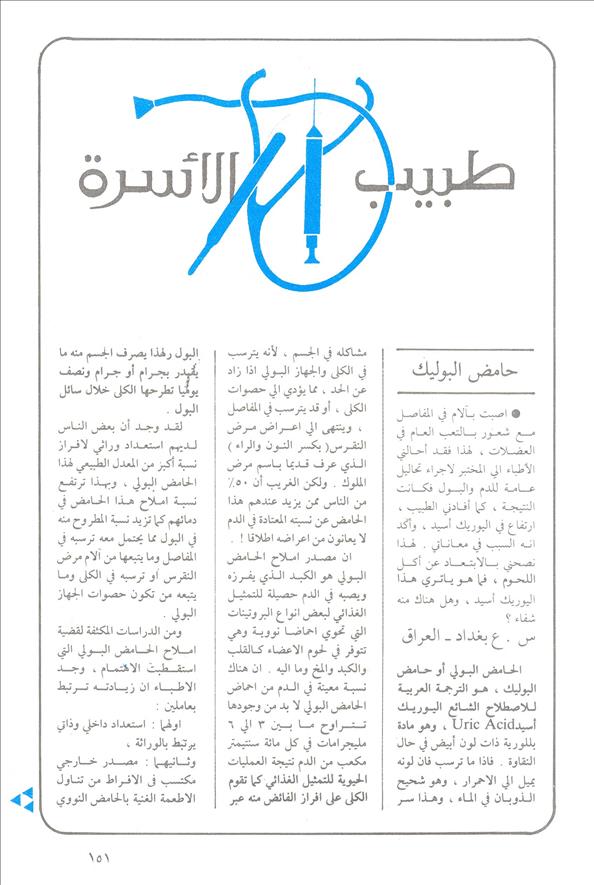 طبيب الأسرة
حامض البوليك
● اصبت بآلام في المفاصل
مع شعور بالتعب العام في
العضلات ، لهذا فقد أحالني
الأطباء الي المختبر لاجراء تحاليل
عامة للدم والبول فكانت
النتيجة ، كما أفادني الطبيب ،
ارتفاع في اليوريك أسيد ، وأكد
انه السبب في معاناتي . لهذا
نصحني بالابتعاد عن أكل
اللحوم ، فما هو ياترى هذا
اليوريك أسيد ، وهل هناك منه
شفاء ؟
س . ع بغداد ـ العراق
الحامض البولي أو حامض
البوليك ، هو الترجمة العربية
للاصطلاح الشائع اليوريك
أسيد Uric Acid ، وهو مادة
بللورية ذات لون أبيض في حال
النقاوة . فاذا ما ترسب فان لونه
يميل الي الاحمرار ، وهو شحيح
الذوبان في الماء ، وهذا سر
مشاكله في الجسم ، لأنه يترسب
في الكلى والجهاز البولي اذا زاد
عن الحد ، مما يؤدي الي حصوات
الكلى ، أو قد يترسب في المفاصل
، وينتهى الي اعراض مرض
النقرس ( بكسر النون والراء )
الذي عرف قديما باسم مرض
الملوك . ولكن الغريب أن ٥٠٪
من الناس ممن يزيد عندهم هذا
الحامض عن نسبته المعتادة في الدم
لا يعانون من اعراضه اطلاقا ! .
ان مصدر املاح الحامض
البولي هو الكبد الذي يفرزه
ويصبه في الدم حصيلة للتمثيل
الغذائي لبعض انواع البروتينات
التي تحوي احماضا نووية وهي
تتوفر في لحوم الاعضاء كالقلب
والكبد والمخ وما اليه . ان هناك
نسبة معينة في الدم من احماض
الحامض البولي لا بد من وجودها
تتراوح ما بين ٣ الي ٦
مليجرامات في كل مائة سنتيمتر
مكعب من الدم نتيجة العمليات
الحيوية للتمثيل الغذائي كما تقوم
الكلى على افراز الفائض منه عبر
البول رلهذا يصرف الجسم منه ما
يقدر بجرام أو جرام ونصف
يوميا تطرحها الكلى خلال سائل
البول .
لقد وجد أن بعض الناس
لديهم استعداد وراثي لافراز
نسبة أكبر من المعدل الطبيعي لهذا
الحامض البولي ، وبهذا ترتفع
نسبة املاح هذا الحامض في
دمائهم كما تزيد نسبة المطروح منه
في البول مما يحتمل معه ترسبه في
المفاصل وما يتبعها من آلام مرض
النقرس او ترسبه في الكلى وما
يتبعه من تكون حصوات الجهاز
البولي .
ومن الدراسات المكثفة لقضية
املاح الحامض البولي التي
استقطبت الاهتمام ، وجد
الاطباء ان زيادته ترتبط
بعاملين :
اولهما : استعداد داخلي وذاتي
يرتبط بالوراثة ،
وثانيهما : مصدر خارجي
مكتسب فى الافراط من تناول
الاطعمة الغنية بالحامض النووي
١٥١